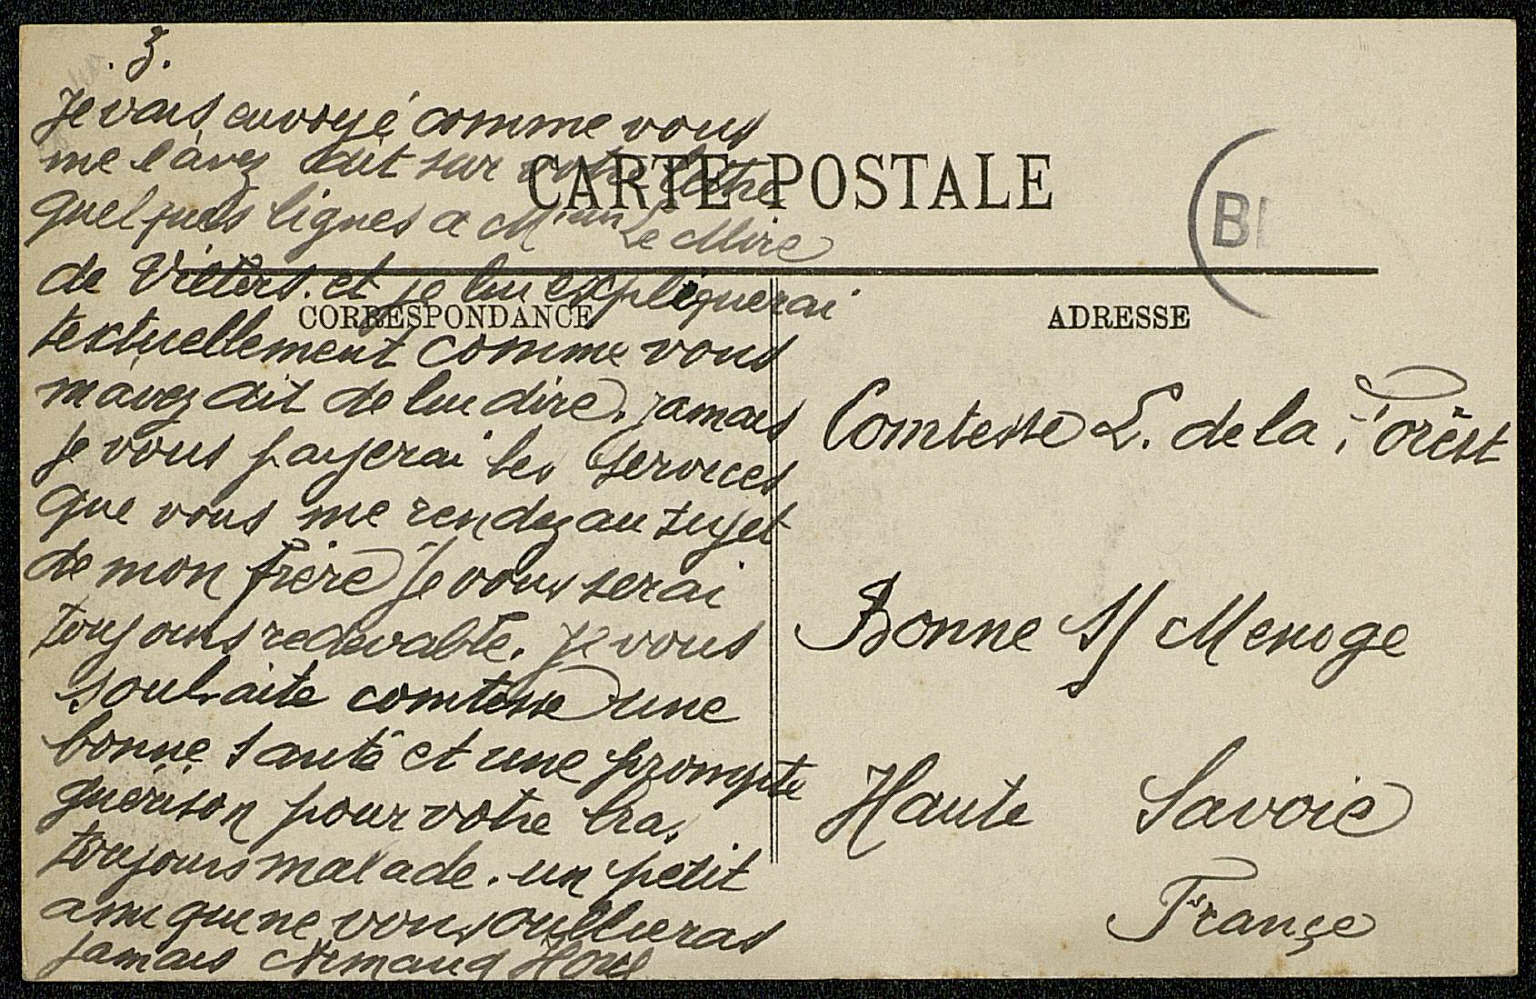 . 3.
Je vais envoyé comme vous
me l'avez dit sur votre lettre
quelques lignes a Le Mire
de Villers. et je lui expliquerai
textuellement comme vous
m'avez dit de lui dire. jamais
je vous payerai les services
que vous me rendez au sujet
de mon frère Je vous serai
toujours redevable. Je vous
souhaite comtesse une
bonne santé et une prompte
guerison pour votre bra,
toujours malade. un petit
ami qui ne vous oullieras
jamais Armand
CARTE POSTALE
BL
CORRESPONDANCE
ADRESSE
Comtesse L. de la Forêst
Bonne S/ Menoge
Haute Savoie
Françe